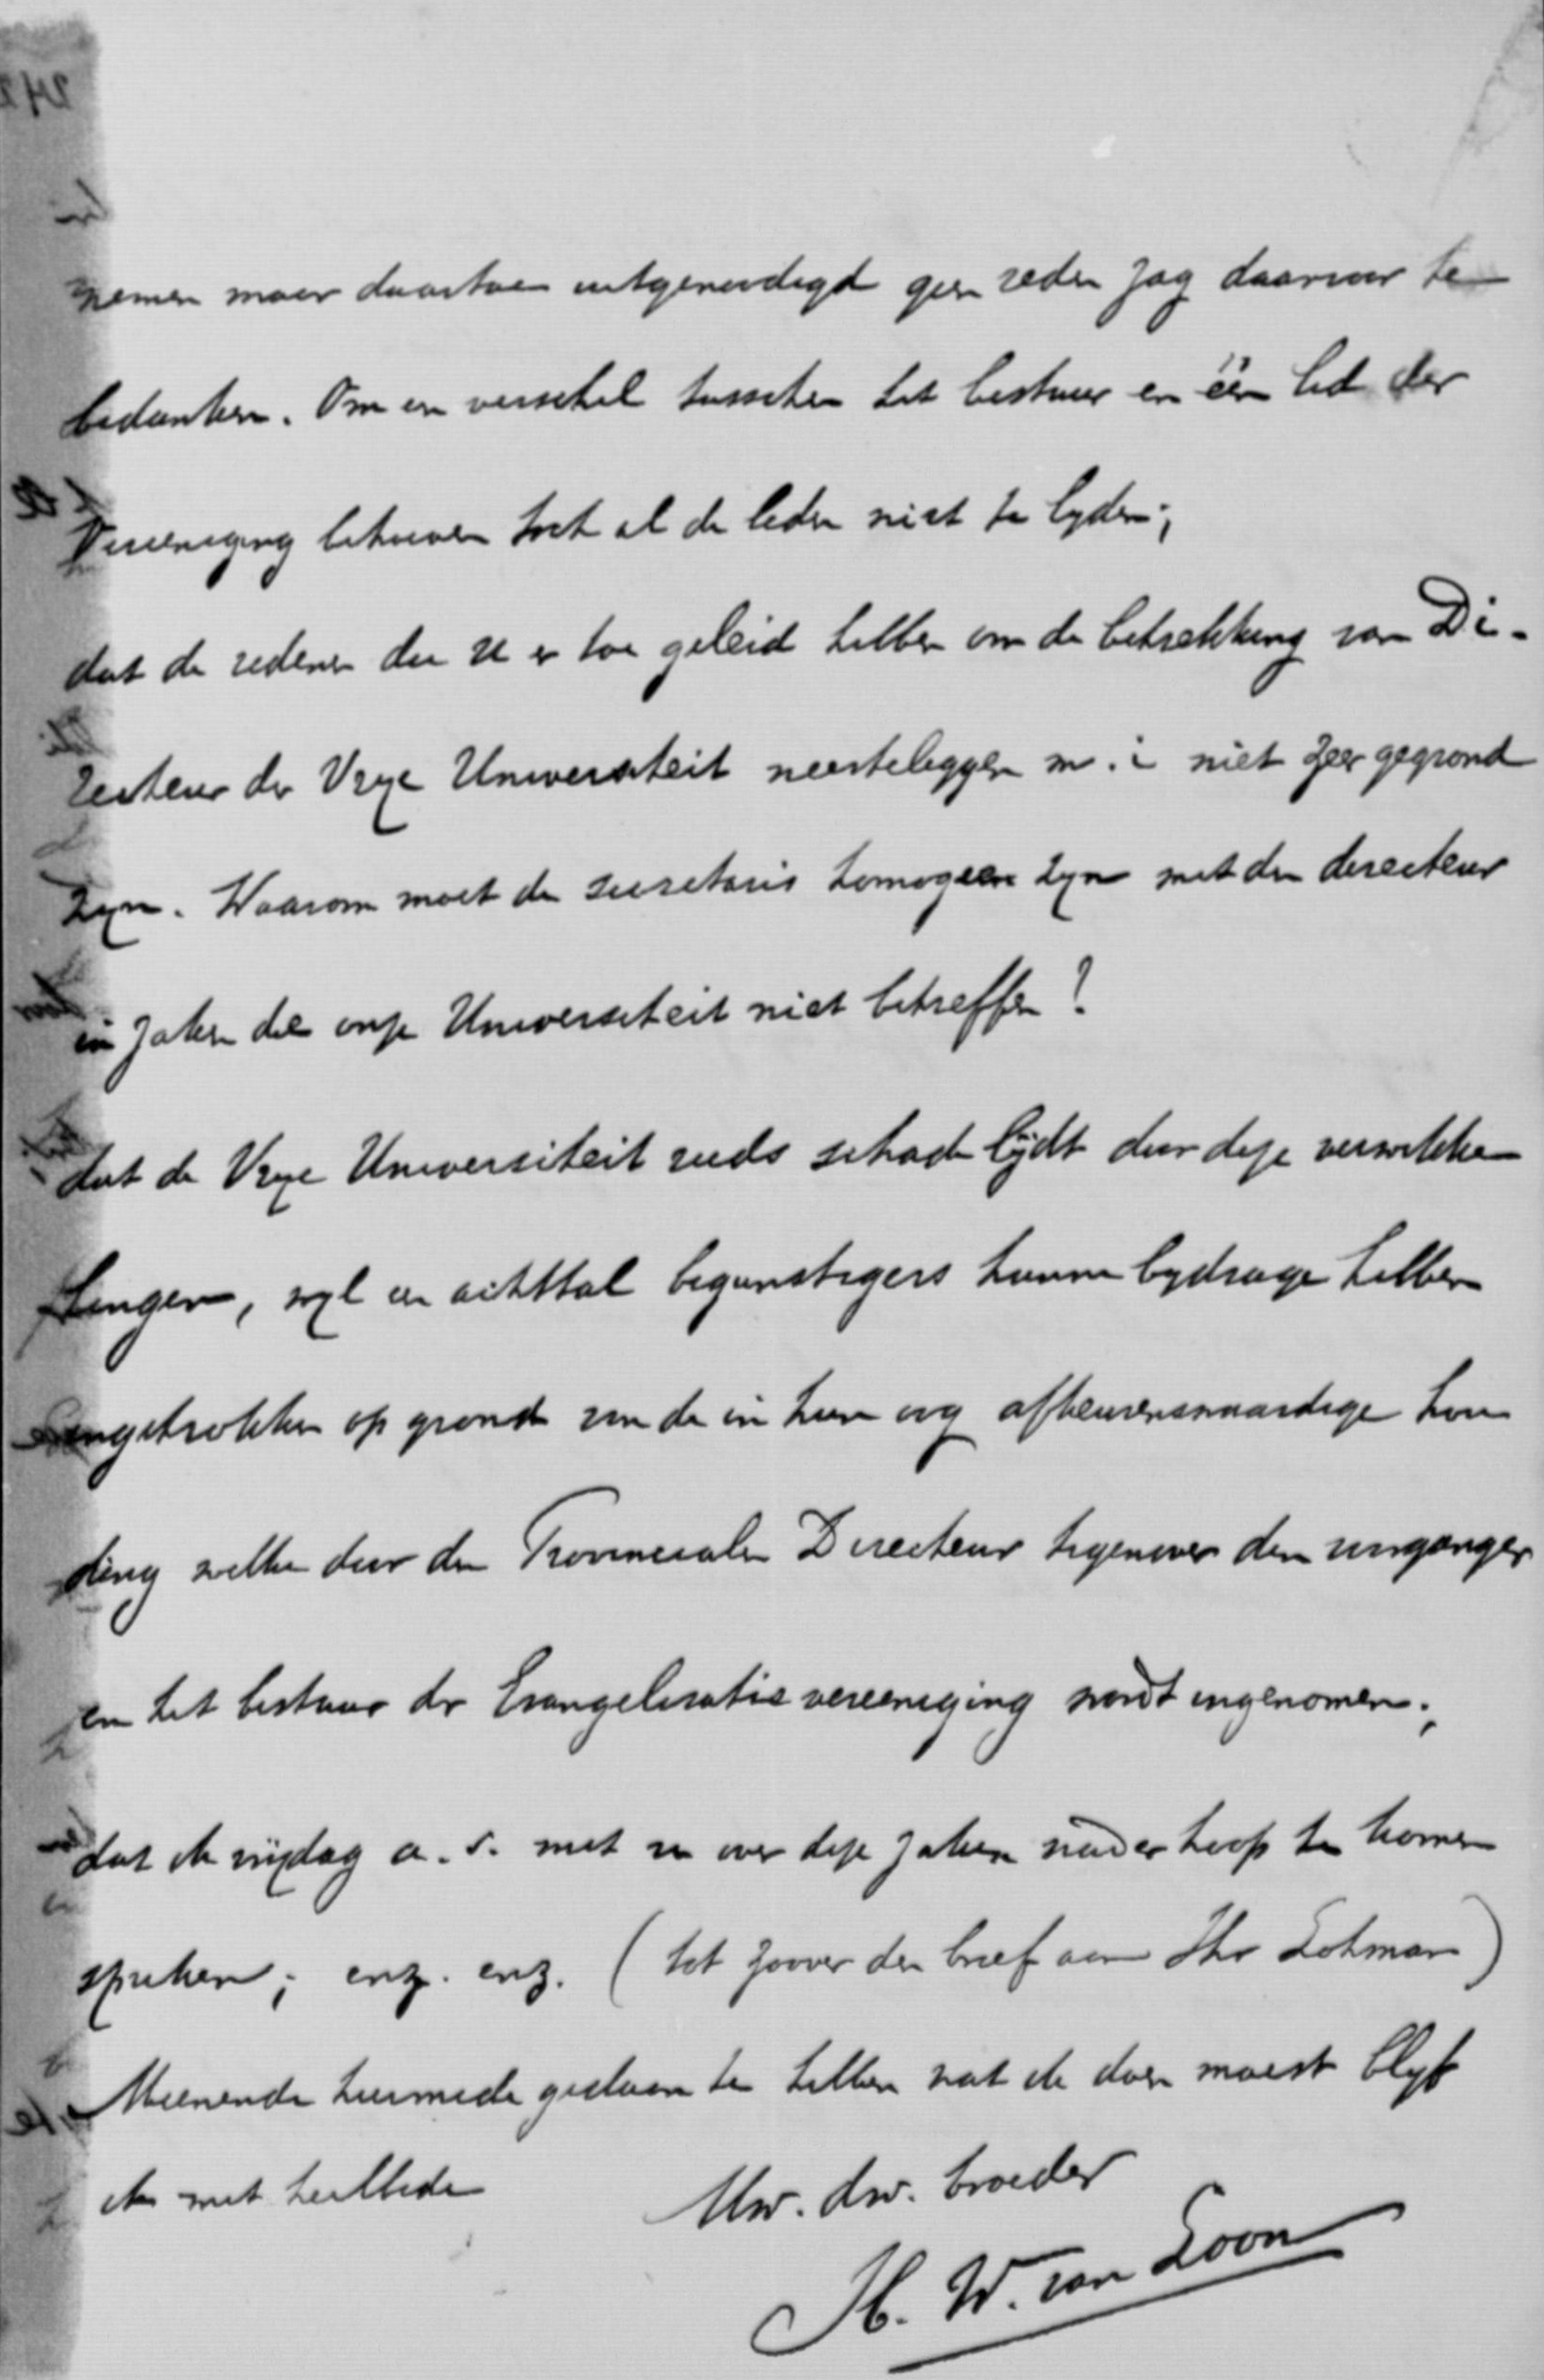 nemen maar daartoe uitgenoodigd geen reden zag daarvoor te
bedanken. Om een verschil tusschen het bestuur en één lid der
Vereeniging behoeven toch al de leden niet te lyden;
dat de redenen die U er toe geleid hebben om de betrekking van Di-
recteur der Vrye Universiteit neerteleggen m. i niet zeer gegrond
zyn. Waarom moet de secretaris homogeen zyn met den directeur
in zaken die onze Universiteit niet betreffen?
dat de Vrye Universiteit reeds schade lydt door deze verwikke
lingen, wyl een achttal begunstigers hunne bydrage hebben
ingetrokken op grond van de in hun oog afkeurenswaardige hou
ding welke door den Provincialen Directeur tegenover den voorganger
en het bestuur der Evangelisatie vereeniging wordt ingenomen;
dat ik vrijdag a. s. met u over deze zaken nader hoop te komen
spreken; enz. enz. (tot zoover den brief aan Jhr Lohman)
Meenende hiermede gedaan te hebben wat ik doen moest blyf
ik met heilbede
Uw. dw. broeder
H. W. van Loon